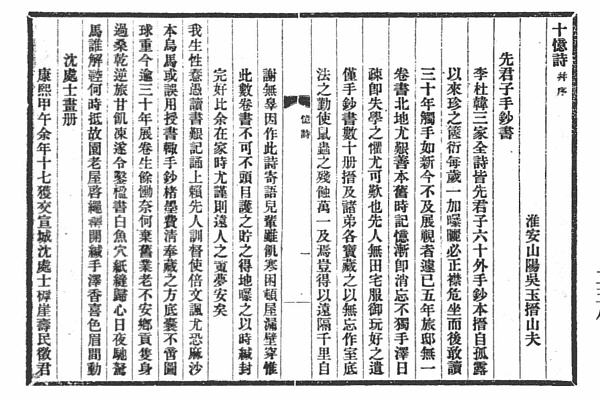 十憶詩 并序
淮安山陽吳玉搢山夫
先君子手鈔書
李杜韓三家全詩皆先君子六十外手鈔本搢自孤露
以來珍之篋衍每歲一加曝曬必正襟危坐而後敢讀
三十年觸手如新今不及展視者遽已五年旅邸無一
卷書北地尤艱善本舊時記憶漸卽消忘不獨手澤日
疎卽失學之懼尤可歎也先人無田宅服御玩好之遺
僅手鈔書數十册搢及諸弟各寶藏之以無忘作室底
法之勤使鼠蟲之殘蝕萬一及焉豈得以遠隔千里自
謝無辠因作此詩寄語兒輩雖飢寒困頓屋漏壁穿惟
此數卷書不可不頭目護之貯之得地曝之以時緘封
完好比余在家時尤謹則遠人之寤夢安矣
我生性憃愚讀書艱記誦上賴先人訓督使倍文諷尤恐麻沙
本烏焉或誤用授書輒手鈔楮墨費淸奉藏之方底囊不啻圖
球重今逾三十年展卷生餘慟奈何棄舊業老不安鄉貢隻身
過桑乾逆旅甘飢凍遂令鑿楹書白魚穴紙縫歸心日夜馳駑
馬誰解鞚何時抵故園老屋啓繩甕開緘手澤香喜色眉間動
沈處士畫册
康熙甲午余年十七獲交宣城沈處士樗崖壽民徵君
憶詩
一